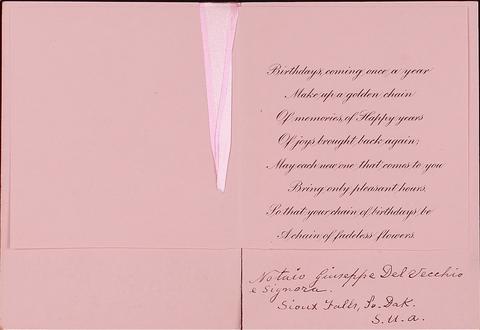 Birthdays, coming once a year
Make up a golden chain
Of memories, of Happy years
Of joys brought back again;
May each new one that comes to you
Bring only pleasant hours,
So that your chain of birthdays, be
A chain of fadeless flowers.
Notaio Giuseppe Del Vecchio
e Signora.
Sioux Falls, So. Dak.
S.U.A.